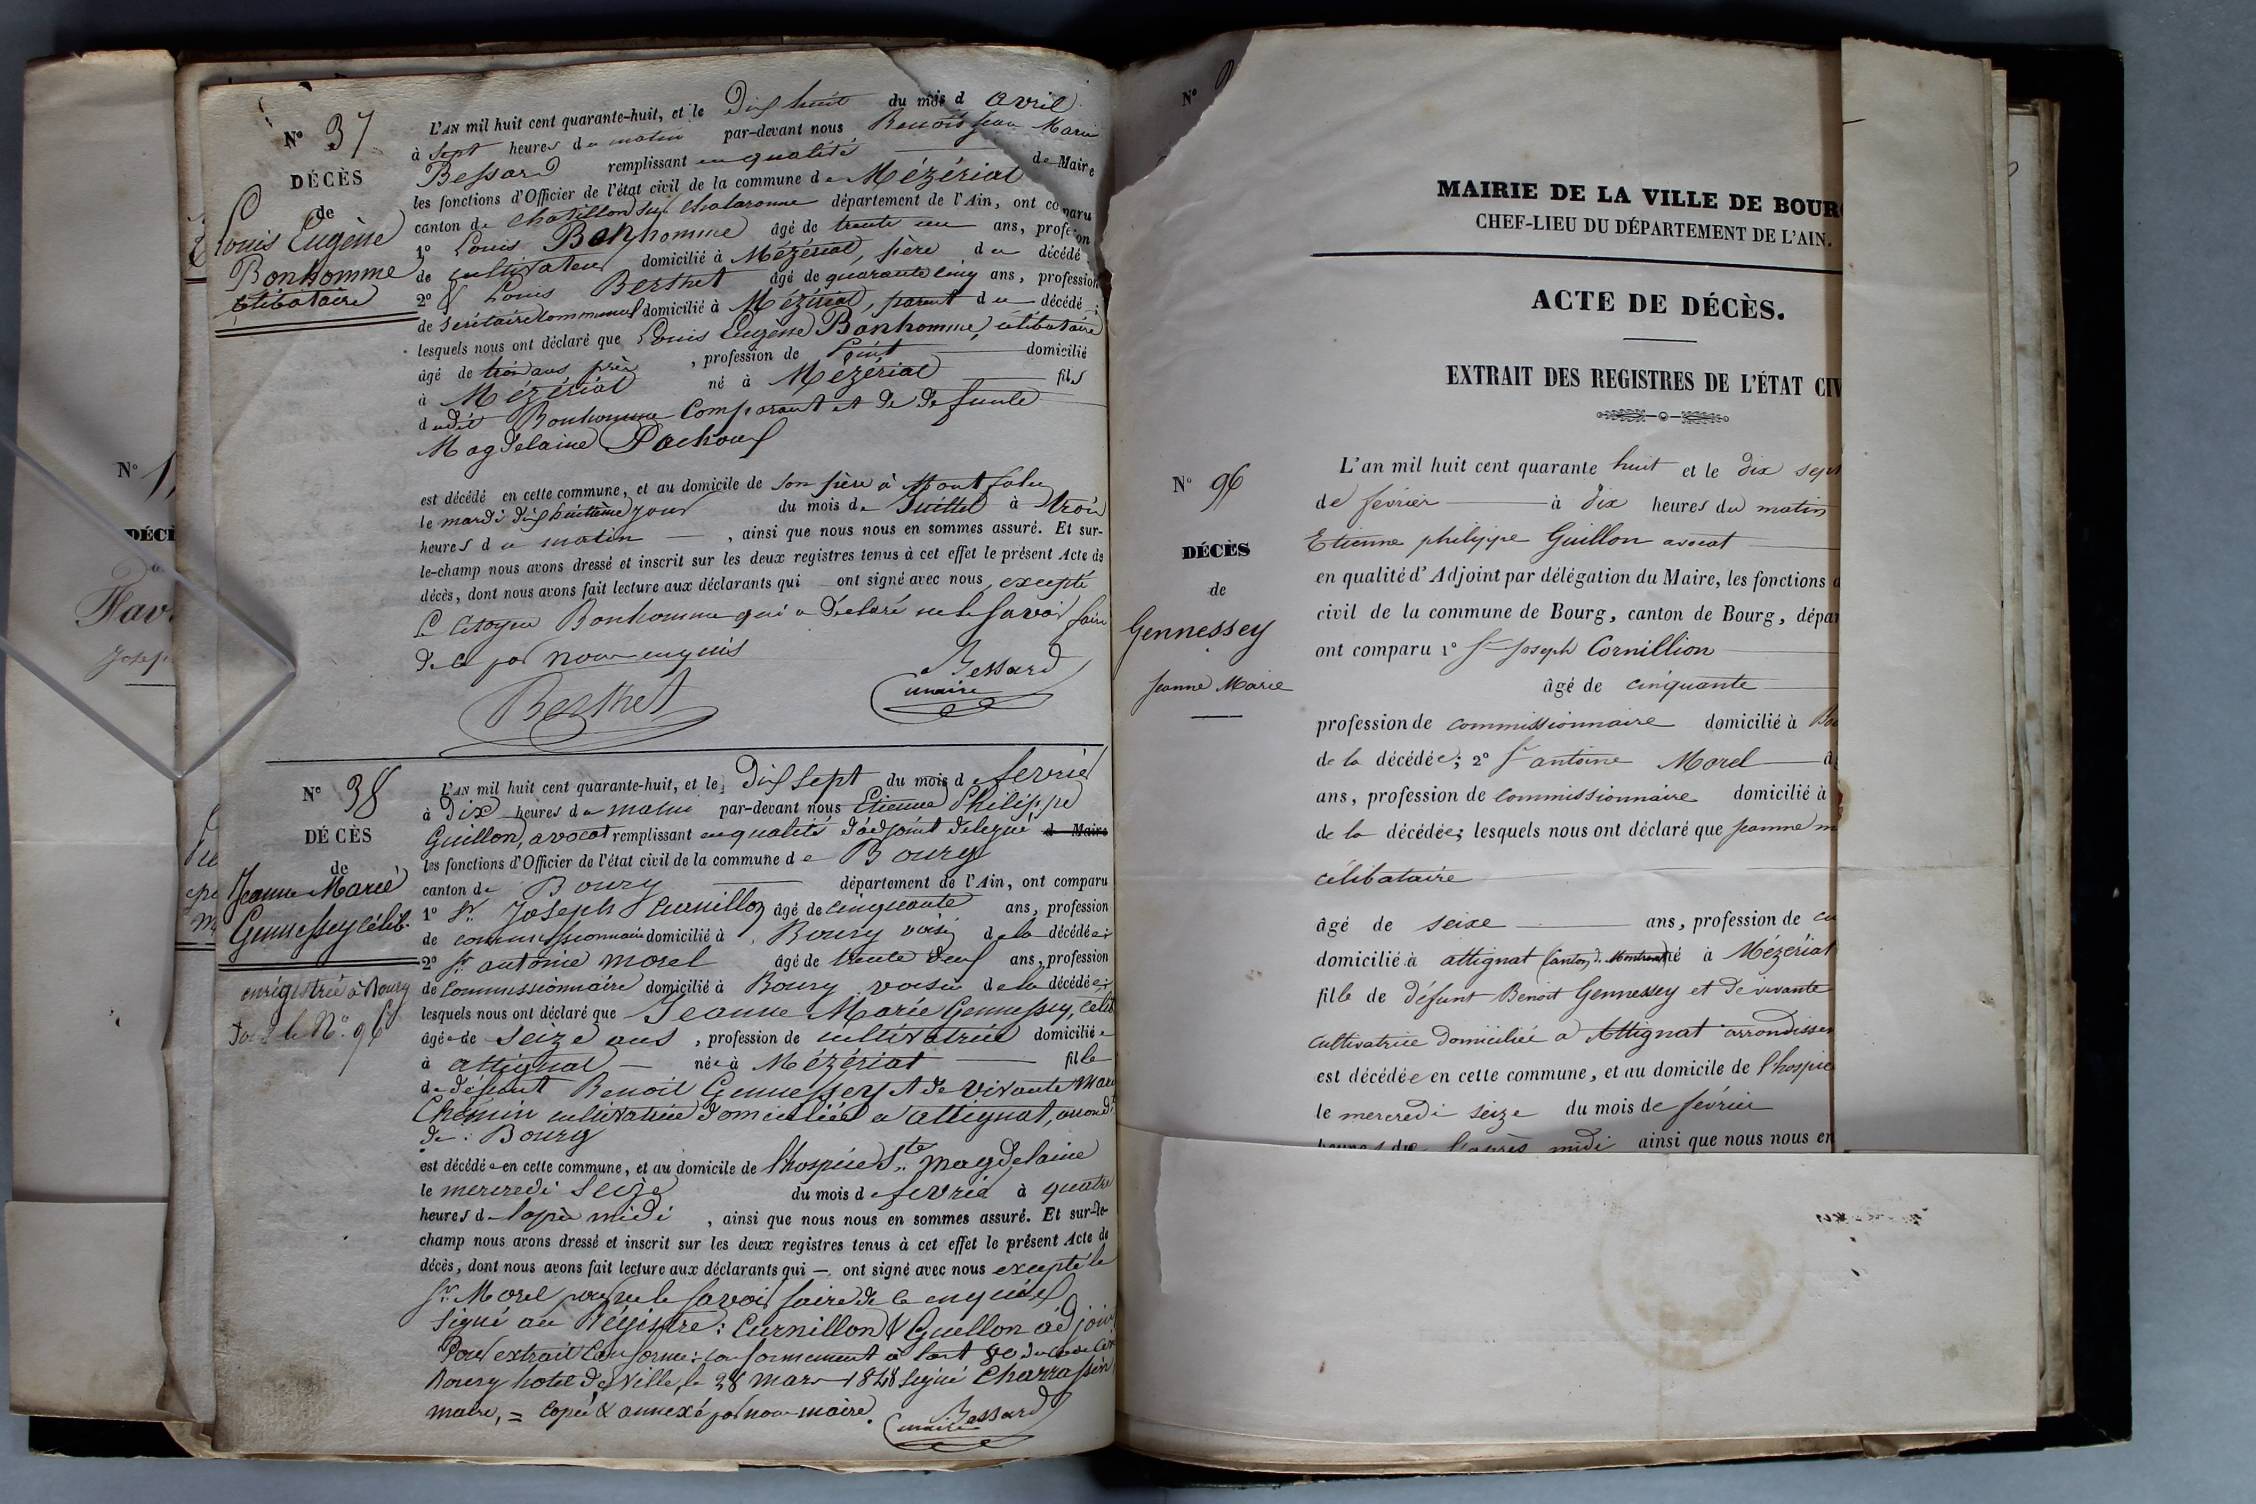 N° 37
DÉCÈS
de
Louis Eugène
Bonhomme
célibataire
L'AN mil huit cent quarante-huit, et le Dix huit du mois d avril
à sept heures du matin par-devant nous Benoit Jean Marie
Bessard remplissant en qualité de Maire
les fonctions d'Officier de l'état civil de la commune de Mézériat
canton de Chatillon sur Chalaronne département de l'Ain, ont comparu
1° Louis Bonhomme âgé de trente un ans, profession
de cultivateur domicilié à Mézériat, père du décédé
2° Louis Berthet âgé de quarante cinq ans, profession
de secrétaire communal domicilié à Mézériat, parent du décédé;
lesquels nous ont déclaré que Louis Eugène Bonhomme, célibataire
âgé de trois ans près, profession de point domicilié
à Mézériat né à Mézériat fils
dudit Bonhomme Comparant et de defunte
Magdelaine Pachoux
est décédé en cette commune, et au domicile de son père à
le mardi dix huitième jour du mois de à trois
heures du matin, ainsi que nous nous en sommes assuré. Et sur-
le-champ nous avons dressé et inscrit sur les deux registres tenus à cet effet le présent Acte de
décès, dont nous avons fait lecture aux déclarants qui ont signé avec nous, excepté
le Citoyen Bonhomme qui a déclaré ne le savoir faire
de ce par nous enquis
Berthet
Bessard
maire
N° 38
DÉCÈS
de
Jeanne Marie
Gennessey célib.
enrégistrée à Bourg
sous le N° 96
L'AN mil huit cent quarante-huit, et le Dix sept du mois de fevrier
à Dix heures du matin par-devant nous Etienne Philippe
Guillon, avocat remplissant en qualité d'adjoint délégué d Maire
les fonctions d'Officier de l'état civil de la commune de Bourg
canton de Bourg département de l'Ain, ont comparu
1° Sr. Joseph Curnillon âgé de cinquante ans, profession
de commissionnaire domicilié à Bourg voisin de la décédée;
2° Sr. antoine morel âgé de trente deux ans, profession
de Commissionnaire domicilié à Bourg voisin de la décédée;
lesquels nous ont déclaré que Jeanne Marie Gennessey, célib
âgée de seize ans, profession de cultivatrice domiciliée
à attignat née à Mézériat fille
de défunt Benoit Gennessey et de vivante Marie
Chemin cultivatrice domiciliée a attignat, arrondt
de Bourg
est décédée en cette commune, et au domicile de l'hospice Ste. Magdelaine
le mercredi seize du mois de fevrier à quatre
heures de l'après midi, ainsi que nous nous en sommes assuré. Et sur-le-
champ nous avons dressé et inscrit sur les deux registres tenus à cet effet le présent Acte de
décès, dont nous avons fait lecture aux déclarants qui — ont signé avec nous excepté le
Sr. Morel pour ne le savoir faire de ce enquis
Signé au Régistre: Curnillon & Guillon adjoint
Pour extrait Conforme: conformement à l'art 80 du code Civil
Bourg hotel de Ville, le 28 mars 1848 signé Charrassin
maire, = Copié & annexé par nous maire.
Bessard
maire
N° 1
DÉCÈ
Fav
Joseph
N°
MAIRIE DE LA VILLE DE BOUR
CHEF-LIEU DU DÉPARTEMENT DE L'AIN.
ACTE DE DÉCÈS.
EXTRAIT DES REGISTRES DE L'ÉTAT CIV
N° 96
DÉCÈS
de
Gennessey
Jeanne Marie
L'an mil huit cent quarante huit et le dix sept
de fevrier à dix heures du matin
Etienne philippe Guillon avocat
en qualité d'Adjoint par délégation du Maire, les fonctions d
civil de la commune de Bourg, canton de Bourg, dépar
ont comparu 1° Sr Joseph Cornillion
âgé de cinquante
profession de commissionnaire domicilié à Bou
de la décédée; 2° Sr antoine Morel â
ans, profession de commissionnaire domicilié à
de la décédée; lesquels nous ont déclaré que Jeanne m
célibataire
âgé de seixe ans, profession de cu
domicilié à attignat (canton de Montrevel) né à Mézériat
fille de défunt Benoit Gennessey et de vivante
cultivatrice domiciliée a Attignat arrondissem
est décédée en cette commune, et au domicile de l'hospice
le mercredi seize du mois de février
heures de l'après midi ainsi que nous nous en